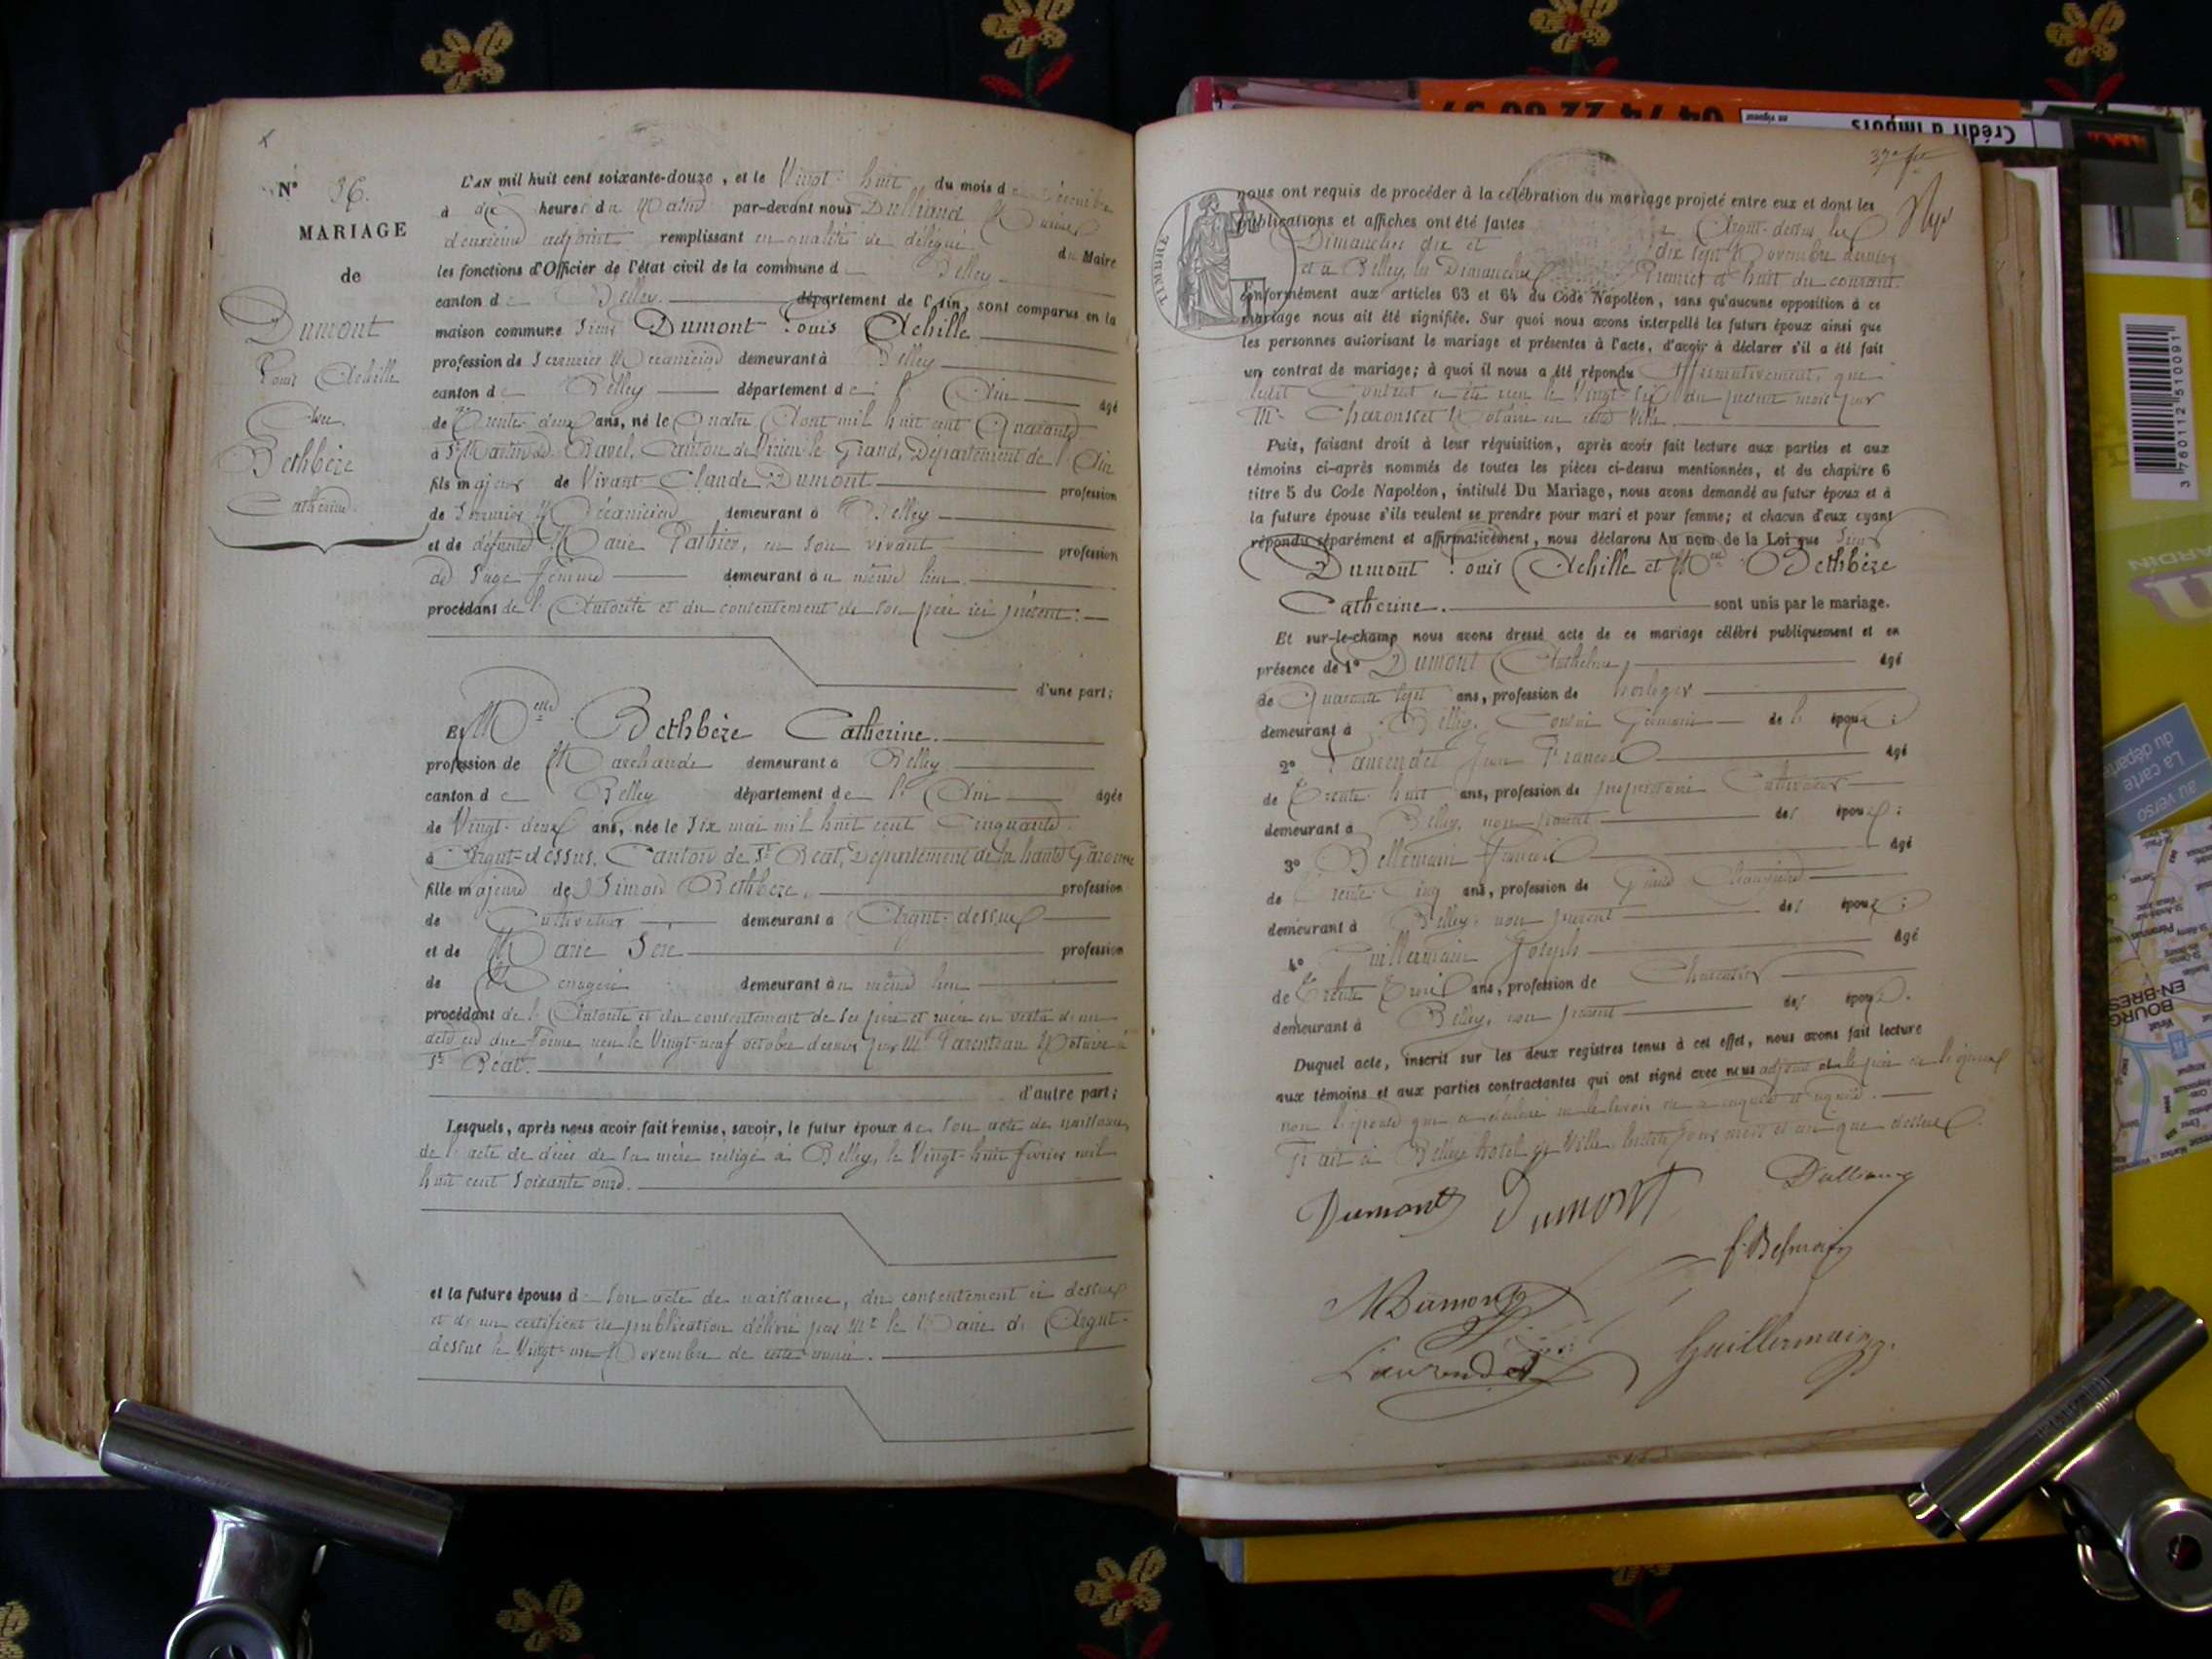 N° 36.
MARIAGE
de
Dumont
Louis Achille
Avec
Bethbèze
Catherine.
L'AN mil huit cent soixante-douze, et le Vingt-huit du mois de Décembre
à dix heures du Matin par-devant nous Dulliand
deuxième adjoint remplissant en qualité de délégué du Maire
les fonctions d'Officier de l'état civil de la commune de Belley
canton de Belley département de l'Ain, sont comparus en la
maison commune Sieur Dumont Louis Achille
profession de Serrurier Mécanicien demeurant à Belley
canton de Belley département de l'Ain âgé
de Trente deux ans, né le Quatre Août mil huit cent Quarante
à St Martin de Bavel, Canton de Virieu le Grand, Département de l'Ain
fils majeur de Vivant Claude Dumont profession
de Serrurier Mécanicien demeurant à Belley
et de défunte Marie Pathier, en son vivant profession
de Sage femme demeurant au même lieu.
procédant de l'Autorité et du consentement de son père ici présent.
d'une part;
Et Melle Bethbèze Catherine.
profession de Marchande demeurant à Belley
canton de Belley département de l'Ain âgée
de Vingt-deux ans, née le Six mai mil huit cent Cinquante
à Argut-dessus, Canton de St Béat, Département de la haute Garonne
fille majeure de Simon Bethbèze, profession
de Cultivateur demeurant à Argut-dessus
et de Marie Séré profession
de Ménagère demeurant au même lieu
procédant de l'Autorité et du consentement de ses père et mère en vertu d'un
acte en due Forme reçu le Vingt-neuf octobre dernier par Me Parenteau Notaire à
St Béat.
d'autre part;
Lesquels, après nous avoir fait remise, savoir, le futur époux de son acte de naissance,
de l'acte de décès de sa mère rédigé à Belley, le Vingt-huit février mil
huit cent soixante onze.
et la future épouse de son acte de naissance, du consentement ci dessus
et d'un certificat de publication délivré par Mr le Maire d'Argut-
dessus le Vingt-un Novembre de cette année.
37e
nous ont requis de procéder à la célébration du mariage projeté entre eux et dont les
publications et affiches ont été faites à Argut-dessus les
Dimanches dix et dix sept Novembre dernier
et à Belley, les Dimanches Premier et huit du courant.
TIMBRE
conformément aux articles 63 et 64 du Code Napoléon, sans qu'aucune opposition à ce
mariage nous ait été signifiée. Sur quoi nous avons interpellé les futurs époux ainsi que
les personnes autorisant le mariage et présentes à l'acte, d'avoir à déclarer s'il a été fait
un contrat de mariage; à quoi il nous a été répondu Affirmativement, que
ledit Contrat a été reçu le Vingt-six du présent mois par
Me Charonset Notaire en cette Ville.
Puis, faisant droit à leur réquisition, après avoir fait lecture aux parties et aux
témoins ci-après nommés de toutes les pièces ci-dessus mentionnées, et du chapitre 6
titre 5 du Code Napoléon, intitulé Du Mariage, nous avons demandé au futur époux et à
la future épouse s'ils veulent se prendre pour mari et pour femme; et chacun d'eux ayant
répondu séparément et affirmativement, nous déclarons Au nom de la Loi que Sieur
Dumont Louis Achille et Melle Bethbèze
Catherine. sont unis par le mariage.
Et sur-le-champ nous avons dressé acte de ce mariage célébré publiquement et en
présence de 1° Dumont Anthelme, âgé
de Quarante sept ans, profession de horloger
demeurant à Belley, Cousin Germain de l'époux;
2° Laurendet Jean François âgé
de Trente huit ans, profession de propriétaire Cultivateur
demeurant à Belley, non parent des époux;
3° Bellemain François âgé
de Trente Cinq ans, profession de
demeurant à Belley, non parent des époux;
4° Guillermain Joseph âgé
de Trente Trois ans, profession de Charcutier
demeurant à Belley, non parent des époux.
Duquel acte, inscrit sur les deux registres tenus à cet effet, nous avons fait lecture
aux témoins et aux parties contractantes qui ont signé avec nous adjoint et le père de l'époux
non l'épouse qui a déclaré ne le savoir de ce enquise et requise.
Fait à Belley hôtel de Ville, lesdits jour mois et an que dessus.
Dumont Dumont Dulliand
f. Belmain
Dumont
Laurendet Guillermain
Crédit d'impôts
en vigueur
04 74 22 80 37
3 760112 510091
JARDIN
La carte
du départe
au verso
BOURG
EN-BRES
Péronnas